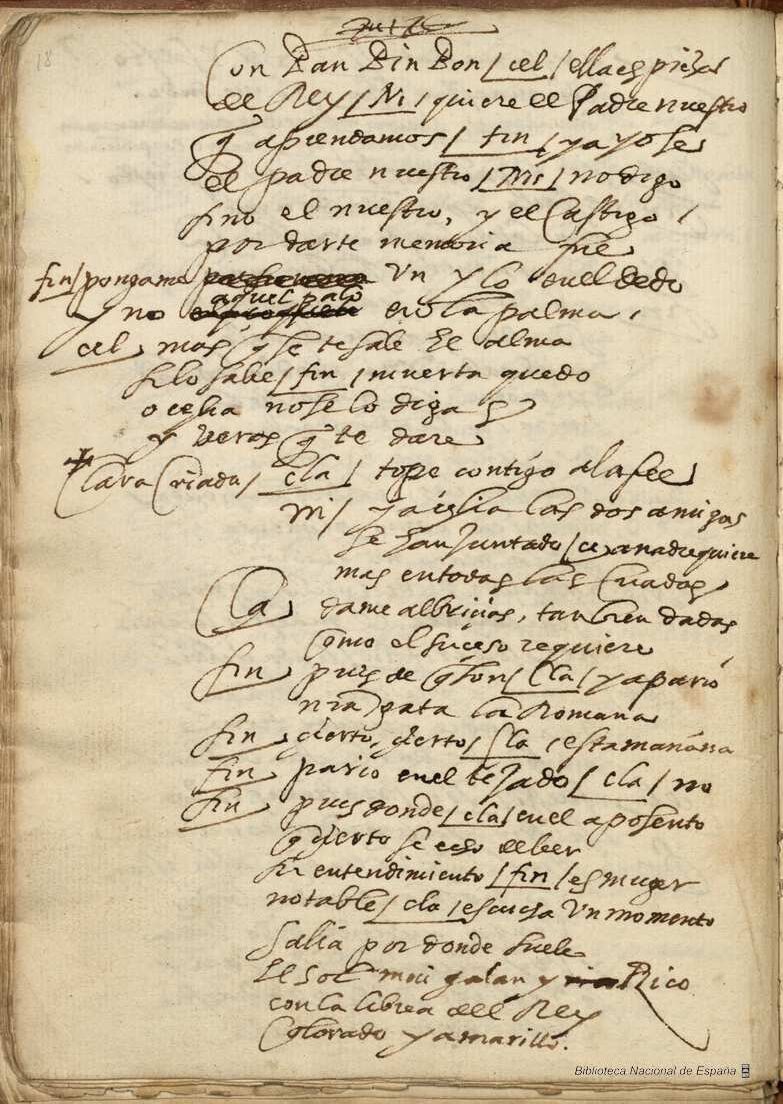 18
Con Dan Din Don / cel / ella es pieza
de Rey / Ni / quiere el Padre nuestro
q aprendamos / fin / ya yo se
el padre nuestro / Ni / no digo
sino el nuestro, y el Castigo
por darte memoria fue
fin / pongame un ylo en el dedo
aquel palo
y no en la palma,
cel mas q se te sale El alma
si lo sabe / fin / muerta quedo
o celia no se lo digas
y veras q te dare
Clara Criada / cla / tope contigo a la fee
Ni / ya celia las dos amigas
se han Juntado / ce / a nadie quiere
mas en todas las Criadas
Cla dame albricias, tan bien dadas
como el suceso requiere
fin pues de q son / Cla / ya pario
nra gata la Romana
fin cierto, cierto / Cla / esta mañana
fin pario en el tejado / cla / no
fin pues donde / cla / en el aposento
q cierto se echo de ver
su entendimiento / fin / es muger
notable / cla / escucha Un momento
Salia por donde suele
El Sol mui galan y Rico
con la librea del Rey
Colorado y amarillo.
Biblioteca Nacional de España